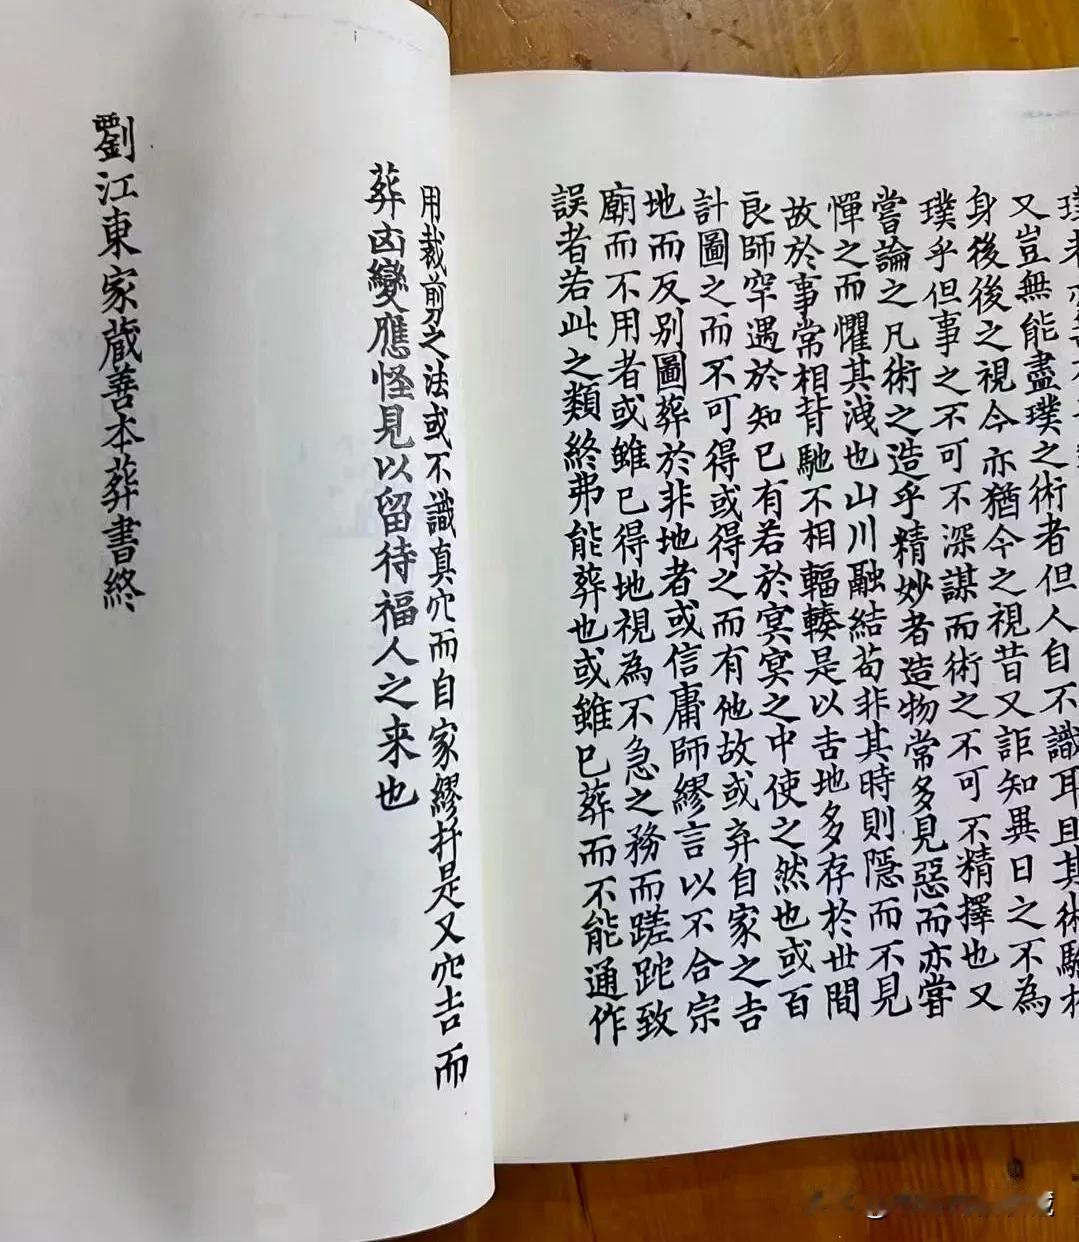 璞者
又豈無能盡璞之術者但人自不識耳且其術驗於
身後後之視今亦猶今之視昔又詎知異日之不為
璞乎但事之不可不深謀而術之不可不精擇也又
嘗論之凡術之造乎精妙者造物常多見惡而亦嘗
憚之而懼其洩也山川融結苟非其時則隱而不見
故於事常相背馳不相輻輳是以吉地多存於世間
良師罕遇於知已有若於冥冥之中使之然也或百
計圖之而不可得或得之而有他故或弃自家之吉
地而反别圖葬於非地者或信庸師繆言以不合宗
廟而不用者或雖已得地視為不急之務而蹉跎致
誤者若此之類終弗能葬也或雖已葬而不能通作
用裁剪之法或不識真穴而自家繆扞是又穴吉而
葬凶變應怪見以留待福人之来也
劉江東家蔵善本葬書終